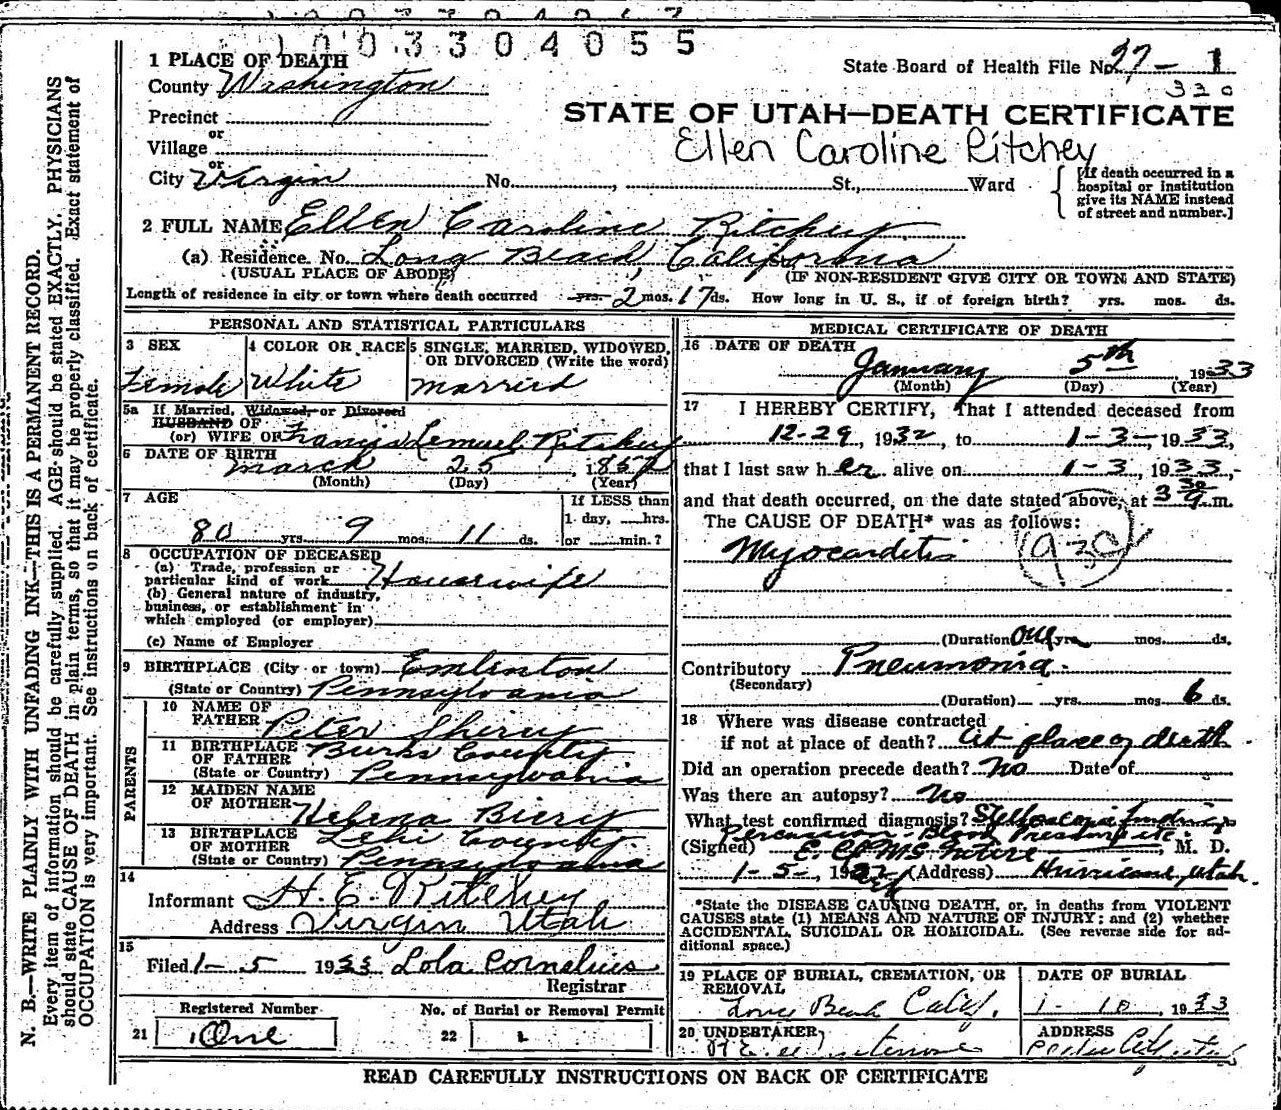 1003304055
1 PLACE OF DEATH
State Board of Health File No. 27-1
320
County Washington
STATE OF UTAH—DEATH CERTIFICATE
Precinct
or
Ellen Caroline Ritchey
Village
or
City Virgin No. , St., Ward
[If death occurred in a
hospital or institution
give its NAME instead
of street and number.]
2 FULL NAME Ellen Caroline Ritchey
(a) Residence. No. Long Beach, California
(USUAL PLACE OF ABODE) (IF NON-RESIDENT GIVE CITY OR TOWN AND STATE)
Length of residence in city or town where death occurred yrs. 2 mos. 17 ds. How long in U. S., if of foreign birth? yrs. mos. ds.
PERSONAL AND STATISTICAL PARTICULARS
3 SEX 4 COLOR OR RACE 5 SINGLE, MARRIED, WIDOWED,
OR DIVORCED (Write the word)
Female White Married
5a If Married, Widowed, or Divorced
HUSBAND OF
(or) WIFE OF Francis Lemuel Ritchey
6 DATE OF BIRTH
March 25, 1852
(Month) (Day) (Year)
7 AGE If LESS than
1 day, hrs.
80 yrs. 9 mos. 11 ds. or min.?
8 OCCUPATION OF DECEASED
(a) Trade, profession or
particular kind of work Housewife
(b) General nature of industry,
business, or establishment in
which employed (or employer)
(c) Name of Employer
9 BIRTHPLACE (City or town) Emlinton
(State or Country) Pennsylvania
PARENTS
10 NAME OF
FATHER Peter Sherry
11 BIRTHPLACE
OF FATHER Burks County
(State or Country) Pennsylvania
12 MAIDEN NAME
OF MOTHER Helena Biery
13 BIRTHPLACE
OF MOTHER Lehi County
(State or Country) Pennsylvania
14
Informant H. E. Ritchey
Address Virgin Utah
15
Filed 1-5 1933 Lola Cornelius
Registrar
Registered Number No. of Burial or Removal Permit
21 One 22 1
MEDICAL CERTIFICATE OF DEATH
16 DATE OF DEATH
January 5th 1933
(Month) (Day) (Year)
17 I HEREBY CERTIFY, That I attended deceased from
12-29, 1932, to 1-3-, 1933,
that I last saw her alive on 1-3, 1933,
and that death occurred, on the date stated above, at 3 30 a. m.
The CAUSE OF DEATH* was as follows:
Myocarditis 93c
(Duration) one yrs. mos. ds.
Contributory Pneumonia.
(Secondary)
(Duration) yrs. mos. 6 ds.
18 Where was disease contracted
if not at place of death? At place of death
Did an operation precede death? No Date of
Was there an autopsy? No
What test confirmed diagnosis?
Percussion - Blood Pressure etc.
(Signed) , M. D.
1-5-, 19 (Address) Hurricane, Utah.
*State the DISEASE CAUSING DEATH, or, in deaths from VIOLENT
CAUSES state (1) MEANS AND NATURE OF INJURY; and (2) whether
ACCIDENTAL, SUICIDAL OR HOMICIDAL. (See reverse side for ad-
ditional space.)
19 PLACE OF BURIAL, CREMATION, OR
REMOVAL
Long Beach Calif.
DATE OF BURIAL
1-10, 1933
20 UNDERTAKER
ADDRESS
READ CAREFULLY INSTRUCTIONS ON BACK OF CERTIFICATE
N. B.—WRITE PLAINLY WITH UNFADING INK—THIS IS A PERMANENT RECORD.
Every item of information should be carefully supplied. AGE should be stated EXACTLY. PHYSICIANS
should state CAUSE OF DEATH in plain terms, so that it may be properly classified. Exact statement of
OCCUPATION is very important. See instructions on back of certificate.